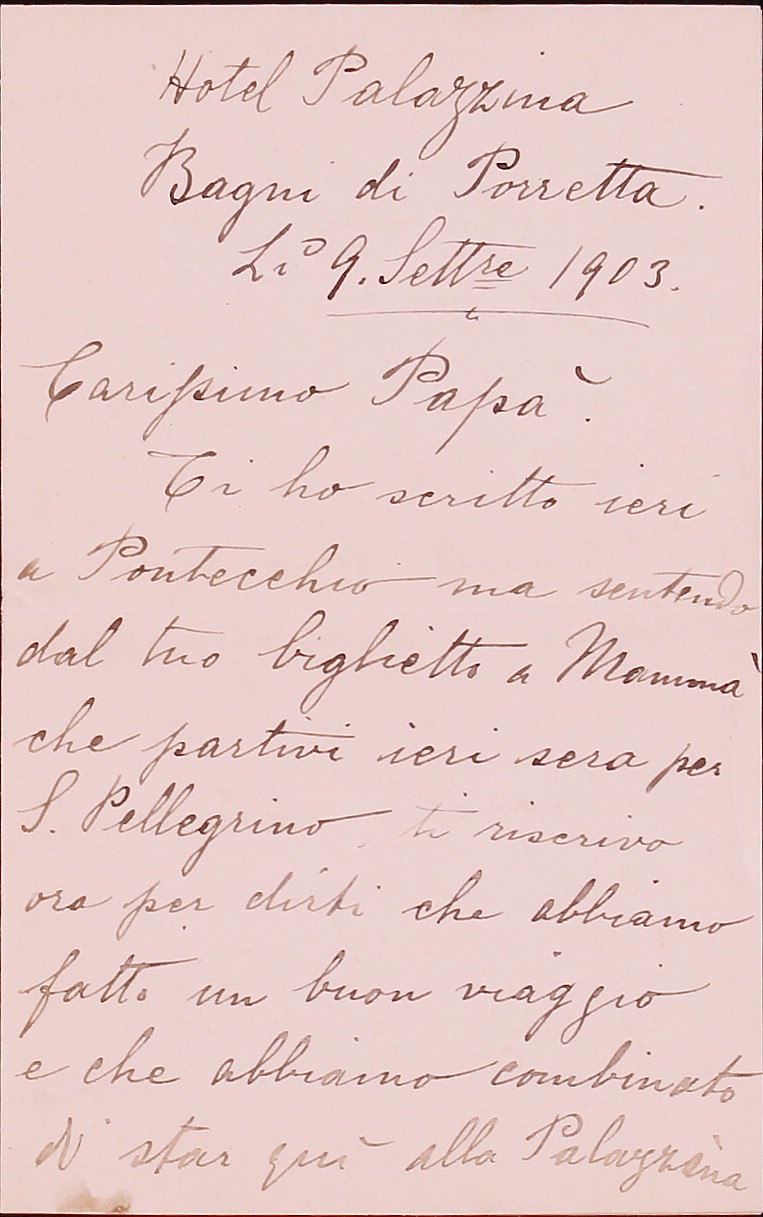 Hotel Palazzina
Bagni di Porretta.
Li 9. Settre 1903.
Carissimo Papà.
Ti ho scritto ieri
a Pontecchio ma sentendo
dal tuo biglietto a Mammà
che partivi ieri sera per
S. Pellegrino ti riscrivo
ora per dirti che abbiamo
fatto un buon viaggio
e che abbiamo combinato
di star quì alla Palazzina